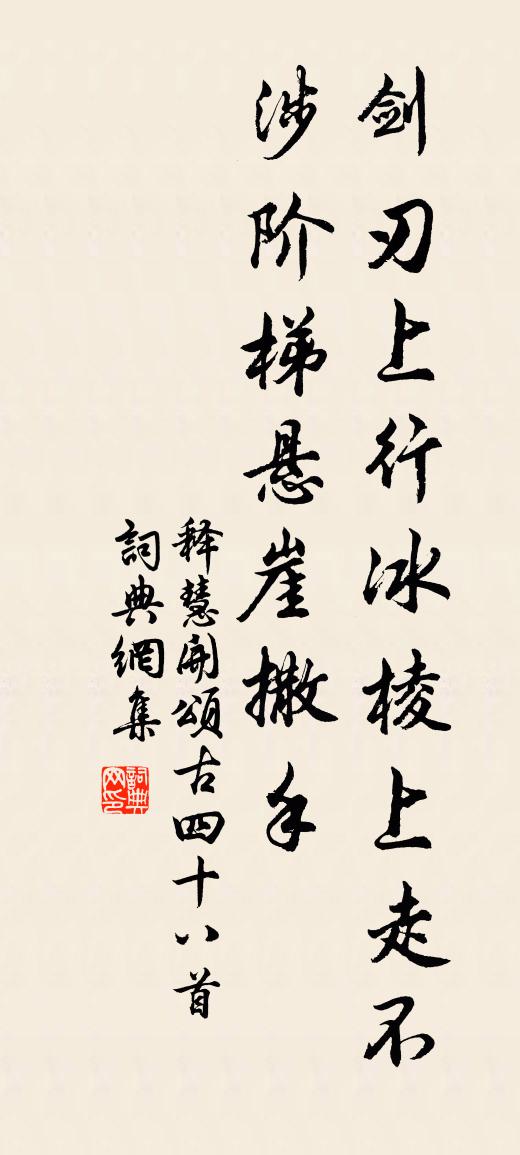 剑刃上行冰棱上走不
涉阶梯悬崖撒手
释慧開頌古四十八首
詞典網集
詞典网印